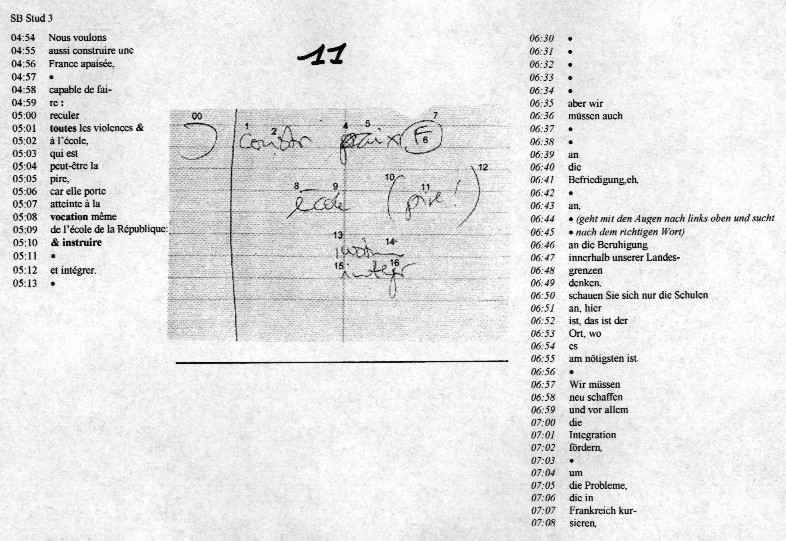 SB Stud 3
04:54 Nous voulons
04:55 aussi construire une
04:56 France apaisée,
04:57 •
04:58 capable de fai-
04:59 re :
05:00 reculer
05:01 toutes les violences &
05:02 à l'école,
05:03 qui est
05:04 peut-être la
05:05 pire,
05:06 car elle porte
05:07 atteinte à la
05:08 vocation même
05:09 de l'école de la République:
05:10 & instruire
05:11 •
05:12 et intégrer.
05:13 •
11
00
1 2 4 5 7
constr paix F
6
8 9 10 11 12
école (pire!)
13 14
15 16
intégr
06:30 •
06:31 •
06:32 •
06:33 •
06:34 •
06:35 aber wir
06:36 müssen auch
06:37 •
06:38 •
06:39 an
06:40 die
06:41 Befriedigung,eh,
06:42 •
06:43 an,
06:44 • (geht mit den Augen nach links oben und sucht
06:45 • nach dem richtigen Wort)
06:46 an die Beruhigung
06:47 innerhalb unserer Landes-
06:48 grenzen
06:49 denken,
06:50 schauen Sie sich nur die Schulen
06:51 an, hier
06:52 ist, das ist der
06:53 Ort, wo
06:54 es
06:55 am nötigsten ist.
06:56 •
06:57 Wir müssen
06:58 neu schaffen
06:59 und vor allem
07:00 die
07:01 Integration
07:02 fördern,
07:03 •
07:04 um
07:05 die Probleme,
07:06 die in
07:07 Frankreich kur-
07:08 sieren,